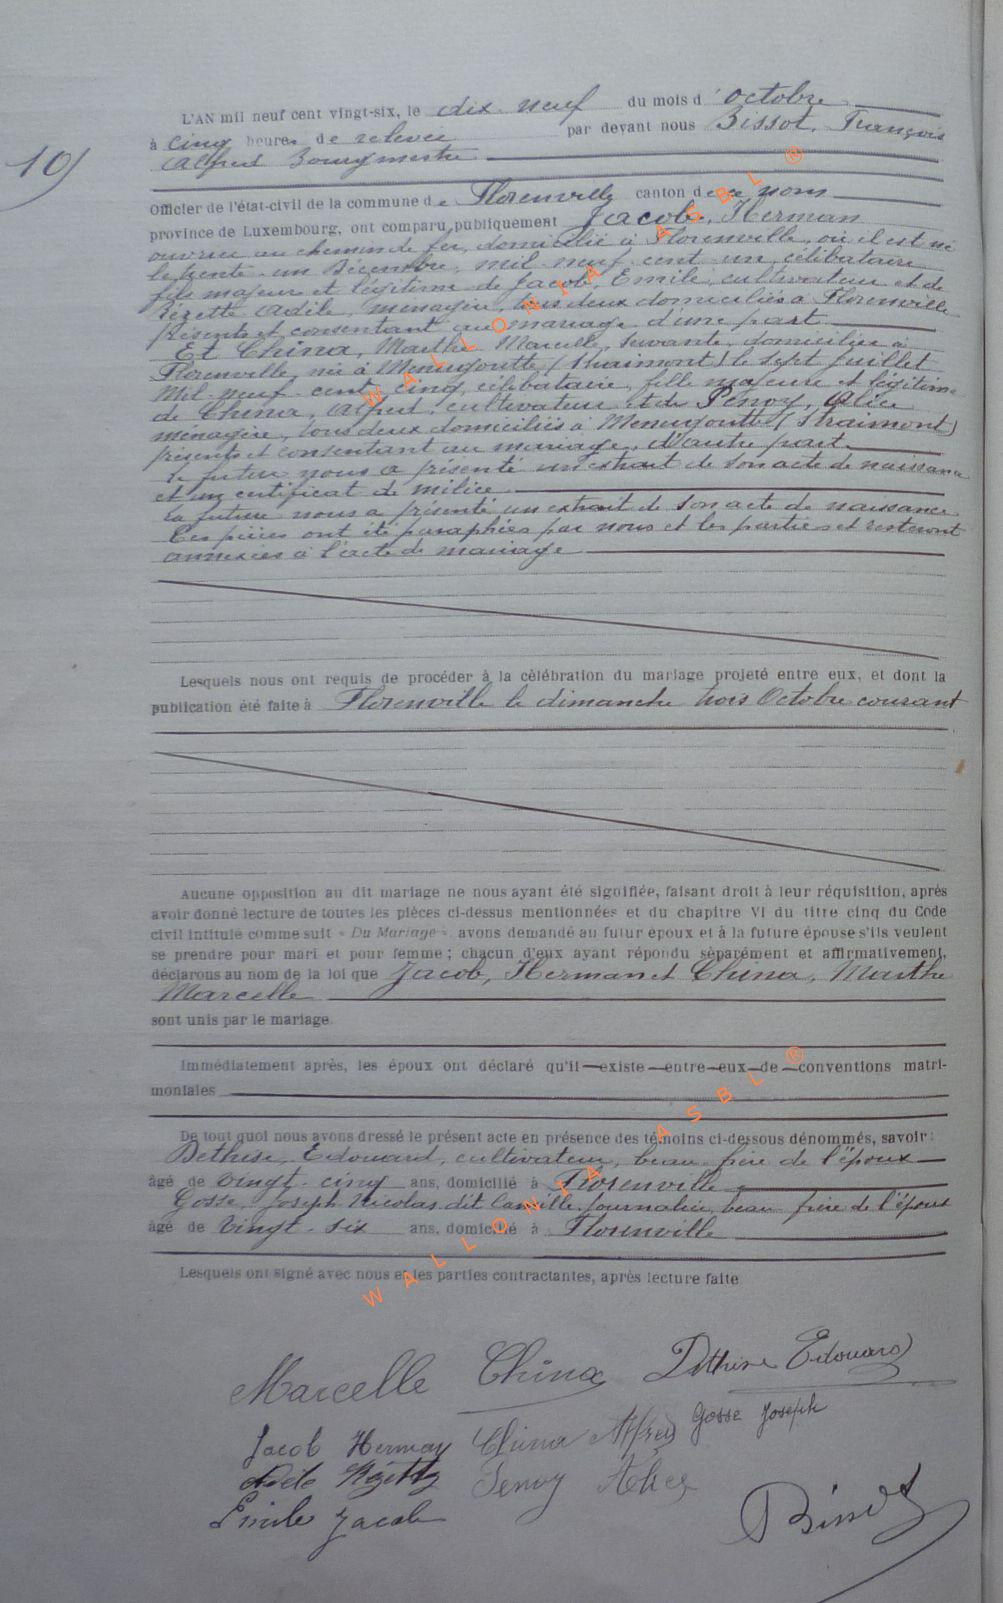 10)
L'AN mil neuf cent vingt-six, le dix-neuf du mois d'octobre
à cinq heures de relevée par devant nous Bissot, François
Alfred Bourgmestre
Officier de l'état-civil de la commune de Florenville canton de ce nom
province de Luxembourg, ont comparu publiquement Jacob, Herman
ouvrier au chemin de fer, domicilié à Florenville, où il est né
le trente-un Décembre, mil neuf cent un, célibataire
fils majeur et légitime de Jacob, Emile, cultivateur et de
Rézette Adèle, ménagère, tous deux domiciliés à Florenville
présents et consentant au mariage, d'une part
Et China, Marthe Marcelle, servante, domiciliée à
Florenville, née à Menugoutte (Straimont) le sept Juillet
mil neuf cent cinq, célibataire, fille majeure et légitime
de China, Alfred, cultivateur et de Penoy, Alice
ménagère, tous deux domiciliés à Menugoutte (Straimont)
présents et consentant au mariage, d'autre part
Le futur nous a présenté un extrait de son acte de naissance
et un certificat de milice
La future nous a présenté un extrait de son acte de naissance
Ces pièces ont été paraphées par nous et les parties et resteront
annexées à l'acte de mariage
Lesquels nous ont requis de procéder à la célébration du mariage projeté entre eux, et dont la
publication été faite à Florenville le dimanche trois Octobre courant
Aucune opposition au dit mariage ne nous ayant été signifiée, faisant droit à leur réquisition, après
avoir donné lecture de toutes les pièces ci-dessus mentionnées et du chapitre VI du titre cinq du Code
civil intitulé comme suit « Du Mariage », avons demandé au futur époux et à la future épouse s'ils veulent
se prendre pour mari et pour femme; chacun d'eux ayant répondu séparément et affirmativement,
déclarons au nom de la loi que Jacob, Herman et China, Marthe
Marcelle
sont unis par le mariage
Immédiatement après, les époux ont déclaré qu'il existe entre eux de conventions matri-
moniales
De tout quoi nous avons dressé le présent acte en présence des témoins ci-dessous dénommés, savoir:
Dethise, Edouard, cultivateur, beau-frère de l'époux
âgé de vingt-cinq ans, domicilié à Florenville
Gosse, Joseph Nicolas dit Camille, journalier, beau-frère de l'époux
âgé de vingt-six ans, domicilié à Florenville
Lesquels ont signé avec nous et les parties contractantes, après lecture faite
Marcelle China Dethise Edouard
Jacob Herman China Alfred Gosse Joseph
Adèle Rézette Penoy Alice
Emile Jacob Bissot
WALLONIA ASBL ®
WALLONIA ASBL ®